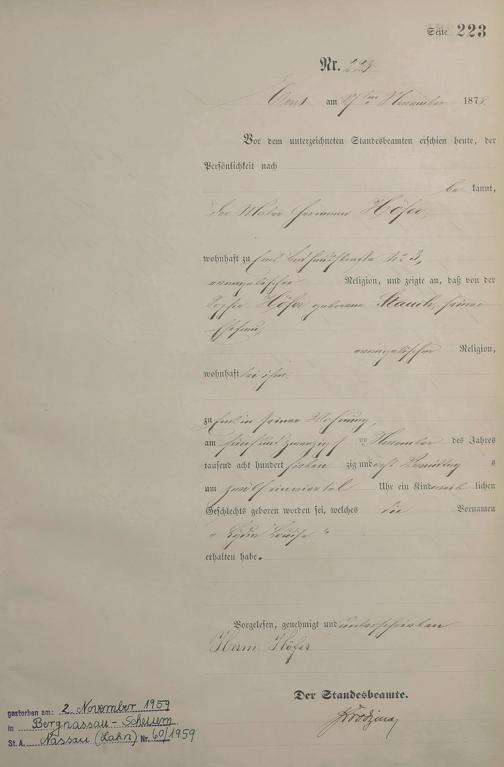 Seite 223
Nr. 223
Ems am 27ten November 1878.
Vor dem unterzeichneten Standesbeamten erschien heute, der
Persönlichkeit nach
be kannt,
der Maler Hermann Höfer,
wohnhaft zu Ems No 3,
evangelischer Religion, und zeigte an, daß von der
Sophie Höfer geborene Stauch, seiner
Ehefrau
evangelischer Religion,
wohnhaft bei ihm,
zu Ems in seiner Wohnung,
am fünfundzwanzigsten November des Jahres
tausend acht hundert sieben zig und acht Vormittags
um zwölf einviertel Uhr ein Kind weib lichen
Geschlechts geboren worden sei, welches die Vornamen
„ Lydia Louise “
erhalten habe.
Vorgelesen, genehmigt und unterschrieben
Herm Höfer
Der Standesbeamte.
gestorben am: 2. November 1959
in Bergnassau-Scheuern
St. A. Nassau (Lahn) Nr. 60/1959